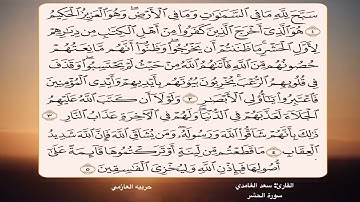 سَبَّحَ لِلَّهِ مَا فِي السَّمَاوَاتِ وَمَا فِي الْأَرْضِ ۖ وَهُوَ الْعَزِيزُ الْحَكِيمُ
١ هُوَ الَّذِي أَخْرَجَ الَّذِينَ كَفَرُوا مِنْ أَهْلِ الْكِتَابِ مِن دِيَارِهِمْ
لِأَوَّلِ الْحَشْرِ ۚ مَا ظَنَنتُمْ أَن يَخْرُجُوا ۖ وَظَنُّوا أَنَّهُم مَّانِعَتُهُمْ
حُصُونُهُم مِّنَ اللَّهِ فَأَتَاهُمُ اللَّهُ مِنْ حَيْثُ لَمْ يَحْتَسِبُوا ۖ وَقَذَفَ
فِي قُلُوبِهِمُ الرُّعْبَ ۚ يُخْرِبُونَ بُيُوتَهُم بِأَيْدِيهِمْ وَأَيْدِي الْمُؤْمِنِينَ
فَاعْتَبِرُوا يَا أُولِي الْأَبْصَارِ ٢ وَلَوْلَا أَن كَتَبَ اللَّهُ عَلَيْهِمُ
الْجَلَاءَ لَعَذَّبَهُمْ فِي الدُّنْيَا ۖ وَلَهُمْ فِي الْآخِرَةِ عَذَابُ النَّارِ ٣
ذَٰلِكَ بِأَنَّهُمْ شَاقُّوا اللَّهَ وَرَسُولَهُ ۖ وَمَن يُشَاقِّ اللَّهَ فَإِنَّ اللَّهَ شَدِيدُ
الْعِقَابِ ٤ مَا قَطَعْتُم مِّن لِّينَةٍ أَوْ تَرَكْتُمُوهَا قَائِمَةً عَلَىٰ
أُصُولِهَا فَبِإِذْنِ اللَّهِ وَلِيُخْزِيَ الْفَاسِقِينَ ٥
القارئ: سعد الغامدي
حربيه العازمي
سورة الحشر